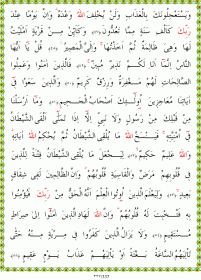 وَيَسْتَعْجِلُونَكَ بِالْعَذَابِ وَلَنْ يُخْلِفَ اللَّهُ وَعْدَهُ وَإِنَّ يَوْمًا عِنْدَ
رَبِّكَ كَأَلْفِ سَنَةٍ مِمَّا تَعُدُّونَ ﴿٤٧﴾ وَكَأَيِّنْ مِنْ قَرْيَةٍ أَمْلَيْتُ
لَهَا وَهِيَ ظَالِمَةٌ ثُمَّ أَخَذْتُهَا وَإِلَيَّ الْمَصِيرُ ﴿٤٨﴾ قُلْ يَا أَيُّهَا
النَّاسُ إِنَّمَا أَنَا لَكُمْ نَذِيرٌ مُبِينٌ ﴿٤٩﴾ فَالَّذِينَ آمَنُوا وَعَمِلُوا
الصَّالِحَاتِ لَهُمْ مَغْفِرَةٌ وَرِزْقٌ كَرِيمٌ ﴿٥٠﴾ وَالَّذِينَ سَعَوْا فِي
آيَاتِنَا مُعَاجِزِينَ أُولَئِكَ أَصْحَابُ الْجَحِيمِ ﴿٥١﴾ وَمَا أَرْسَلْنَا
مِنْ قَبْلِكَ مِنْ رَسُولٍ وَلَا نَبِيٍّ إِلَّا إِذَا تَمَنَّى أَلْقَى الشَّيْطَانُ
فِي أُمْنِيَّتِهِ فَيَنْسَخُ اللَّهُ مَا يُلْقِي الشَّيْطَانُ ثُمَّ يُحْكِمُ اللَّهُ آيَاتِهِ
وَاللَّهُ عَلِيمٌ حَكِيمٌ ﴿٥٢﴾ لِيَجْعَلَ مَا يُلْقِي الشَّيْطَانُ فِتْنَةً لِلَّذِينَ
فِي قُلُوبِهِمْ مَرَضٌ وَالْقَاسِيَةِ قُلُوبُهُمْ وَإِنَّ الظَّالِمِينَ لَفِي شِقَاقٍ
بَعِيدٍ ﴿٥٣﴾ وَلِيَعْلَمَ الَّذِينَ أُوتُوا الْعِلْمَ أَنَّهُ الْحَقُّ مِنْ رَبِّكَ فَيُؤْمِنُوا
بِهِ فَتُخْبِتَ لَهُ قُلُوبُهُمْ وَإِنَّ اللَّهَ لَهَادِ الَّذِينَ آمَنُوا إِلَى صِرَاطٍ
مُسْتَقِيمٍ ﴿٥٤﴾ وَلَا يَزَالُ الَّذِينَ كَفَرُوا فِي مِرْيَةٍ مِنْهُ حَتَّى
تَأْتِيَهُمُ السَّاعَةُ بَغْتَةً أَوْ يَأْتِيَهُمْ عَذَابُ يَوْمٍ عَقِيمٍ ﴿٥٥﴾